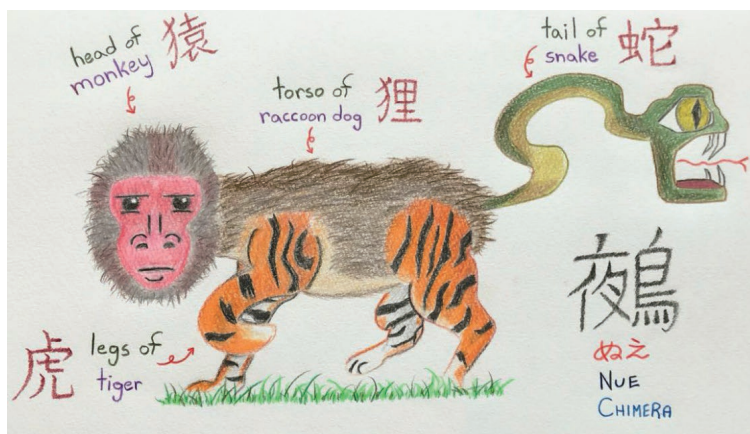 head of
monkey
猿
torso of
raccoon dog
狸
tail of
snake
蛇
虎
legs of
tiger
鵺
ぬえ
NUE
CHIMERA